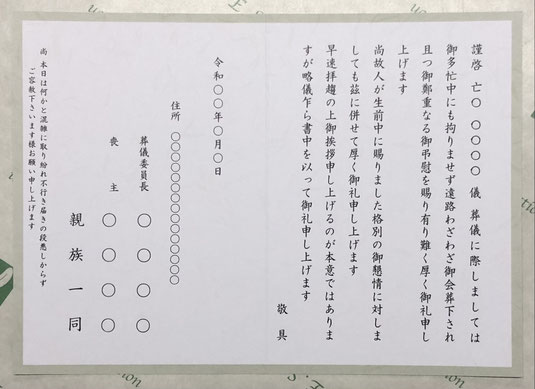 謹啓 亡〇 〇〇〇〇 儀 葬儀に際しましては
御多忙中にも拘りませず遠路わざわざ御会葬下され
且つ御鄭重なる御弔慰を賜り有り難く厚く御礼申し
上げます
尚故人が生前中に賜りました格別の御懇情に対しま
しても茲に併せて厚く御礼申し上げます
早速拝趨の上御挨拶申し上げるのが本意ではありま
すが略儀乍ら書中を以って御礼申し上げます
敬具
令和〇〇年〇月〇日
住所 〇〇〇〇〇〇〇〇〇〇〇〇〇
葬儀委員長 〇〇〇〇
喪主 〇〇〇〇
親族一同
尚 本日は何かと混雑に取り紛れ不行き届きの段悪しからず
ご容赦下さいます様お願い申し上げます